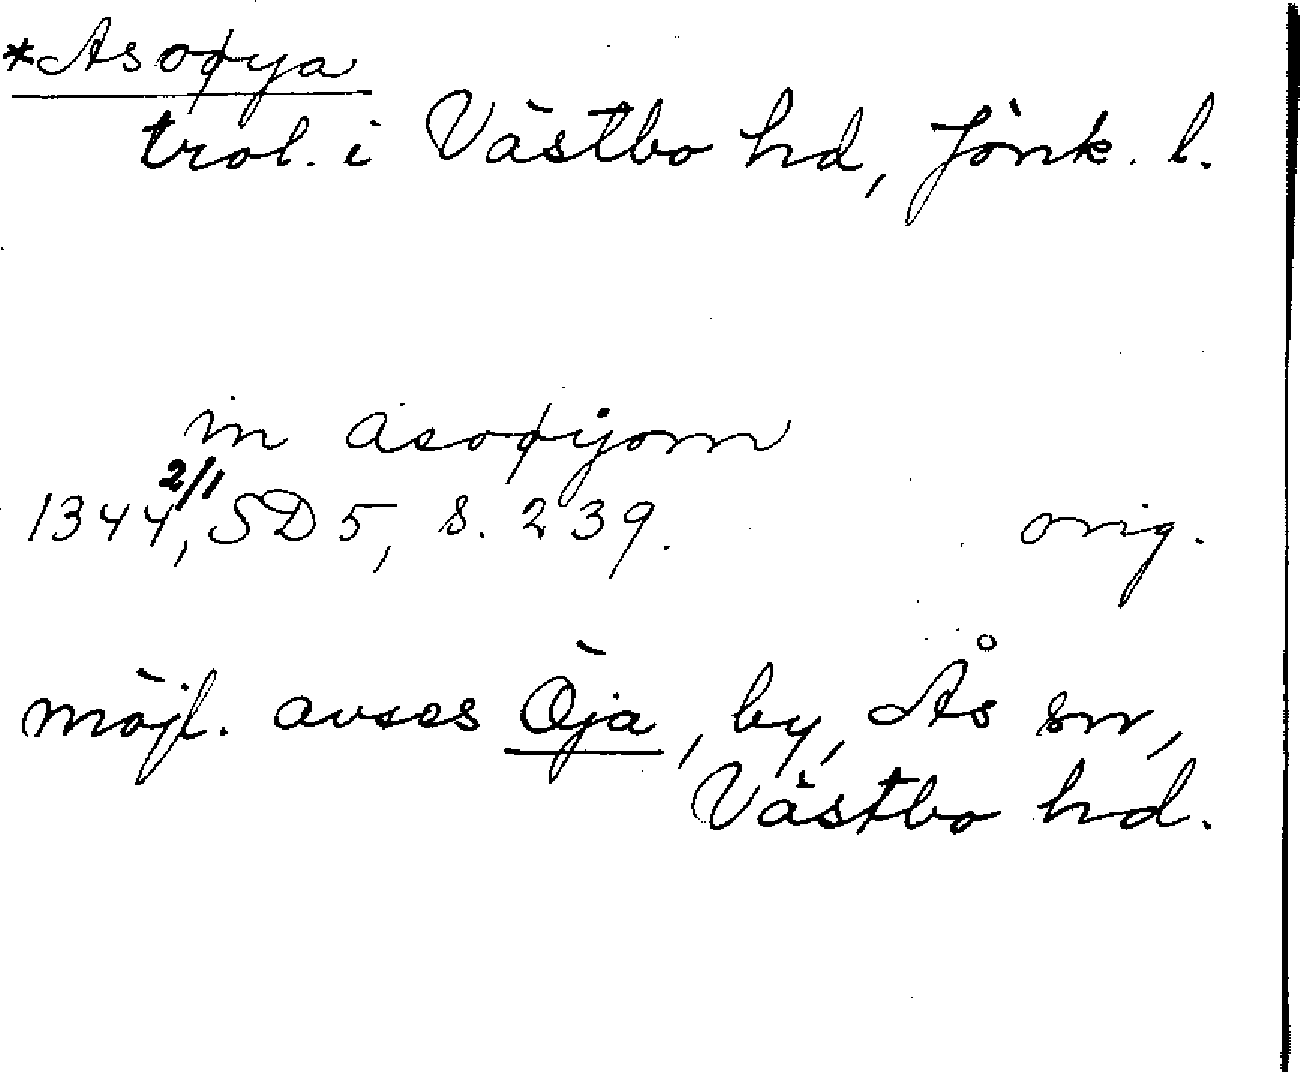 *Asoøya
trol. i Västbo hd, Jönk. l.
in asoøyom
1344 2/1, SD 5, s. 239. orig.
möjl. avses Öja, by, Ås sn,
Västbo hd.